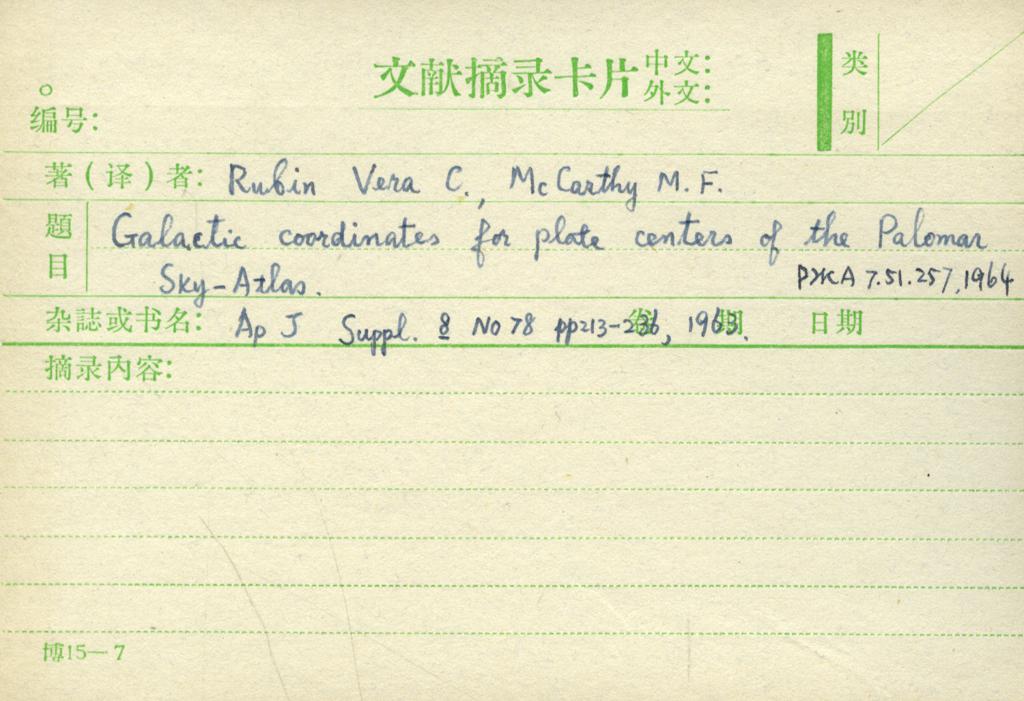 文献摘录卡片 中文:
外文:
类别
编号:
著(译)者: Rubin Vera C., McCarthy M. F.
题目 Galactic coordinates for plate centers of the Palomar
Sky-Atlas. РЖА 7.51.257, 1964
杂誌或书名: Ap J Suppl. 8 No 78 pp213-236, 1963. 卷 期 日期
摘录内容:
博15—7